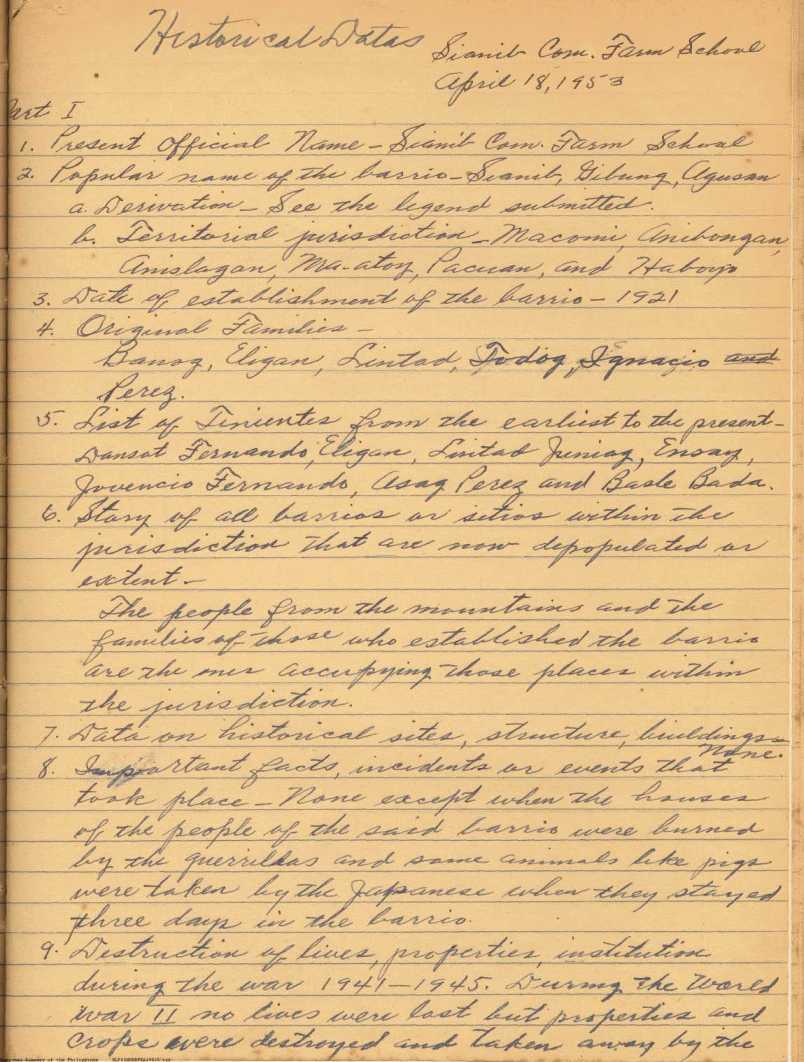 Historical Datas
Sianib Com. Farm School
April 18, 1953
Part I
1. Present Official Name - Sianib Com. Farm School
2. Popular name of the barrio - Sianib, Gibung, Agusan
a. Derivation - See the legend submitted.
b. Territorial jurisdiction - Macomi, Anibongan,
Anislagan, Ma-atoy, Pacuan, and Haboyo
3. Date of establishment of the barrio - 1921
4. Original Families -
Banog, Eligan, Lintad, Todog, Ignacio and
Perez.
5. List of Tinientes from the earliest to the present -
Dansot Fernando, Eligan, Lintad Juniag, Ensay,
Jovencio Fernando, Asag Perez and Basle Bada.
6. Story of all barrios or sitios within the
jurisdiction that are now depopulated or
extent -
The people from the mountains and the
families of those who established the barrio
are the ones accupying those places within
the jurisdiction.
7. Data on historical sites, structure, buildings -
None.
8. Important facts, incidents or events that
took place - None except when the houses
of the people of the said barrio were burned
by the guerrillas and some animals like pigs
were taken by the Japanese when they stayed
three days in the barrio.
9. Destruction of lives, properties, institution
during the war 1941-1945. During the World
War II no lives were lost but properties and
crops were destroyed and taken away by the